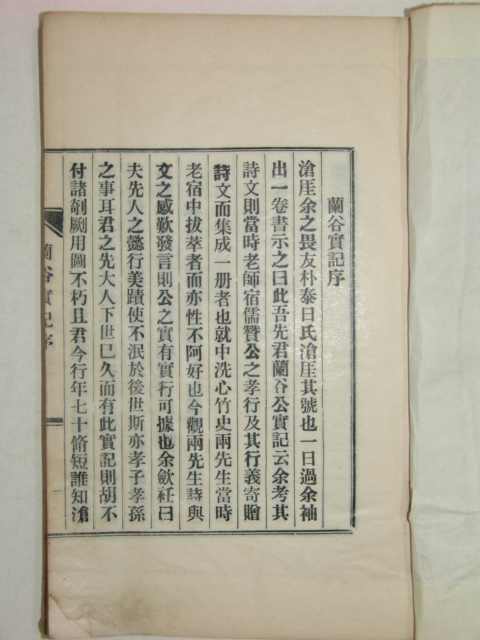 蘭谷實記序
滄厓余之畏友朴泰日氏滄厓其號也一日過余袖
出一卷書示之曰此吾先君蘭谷公實記云余考其
詩文則當時老師宿儒贊公之孝行及其行義寄贈
詩文而集成一册者也就中洗心竹史兩先生當時
老宿中拔萃者而亦性不阿好也今觀兩先生詩與
文之感歎發言則公之實有實行可據也余斂衽曰
夫先人之懿行美蹟使不泯於後世斯亦孝子孝孫
之事耳君之先大人下世已久而有此實記則胡不
付諸剞劂用圖不朽且君今行年七十脩短誰知滄
蘭谷實記序